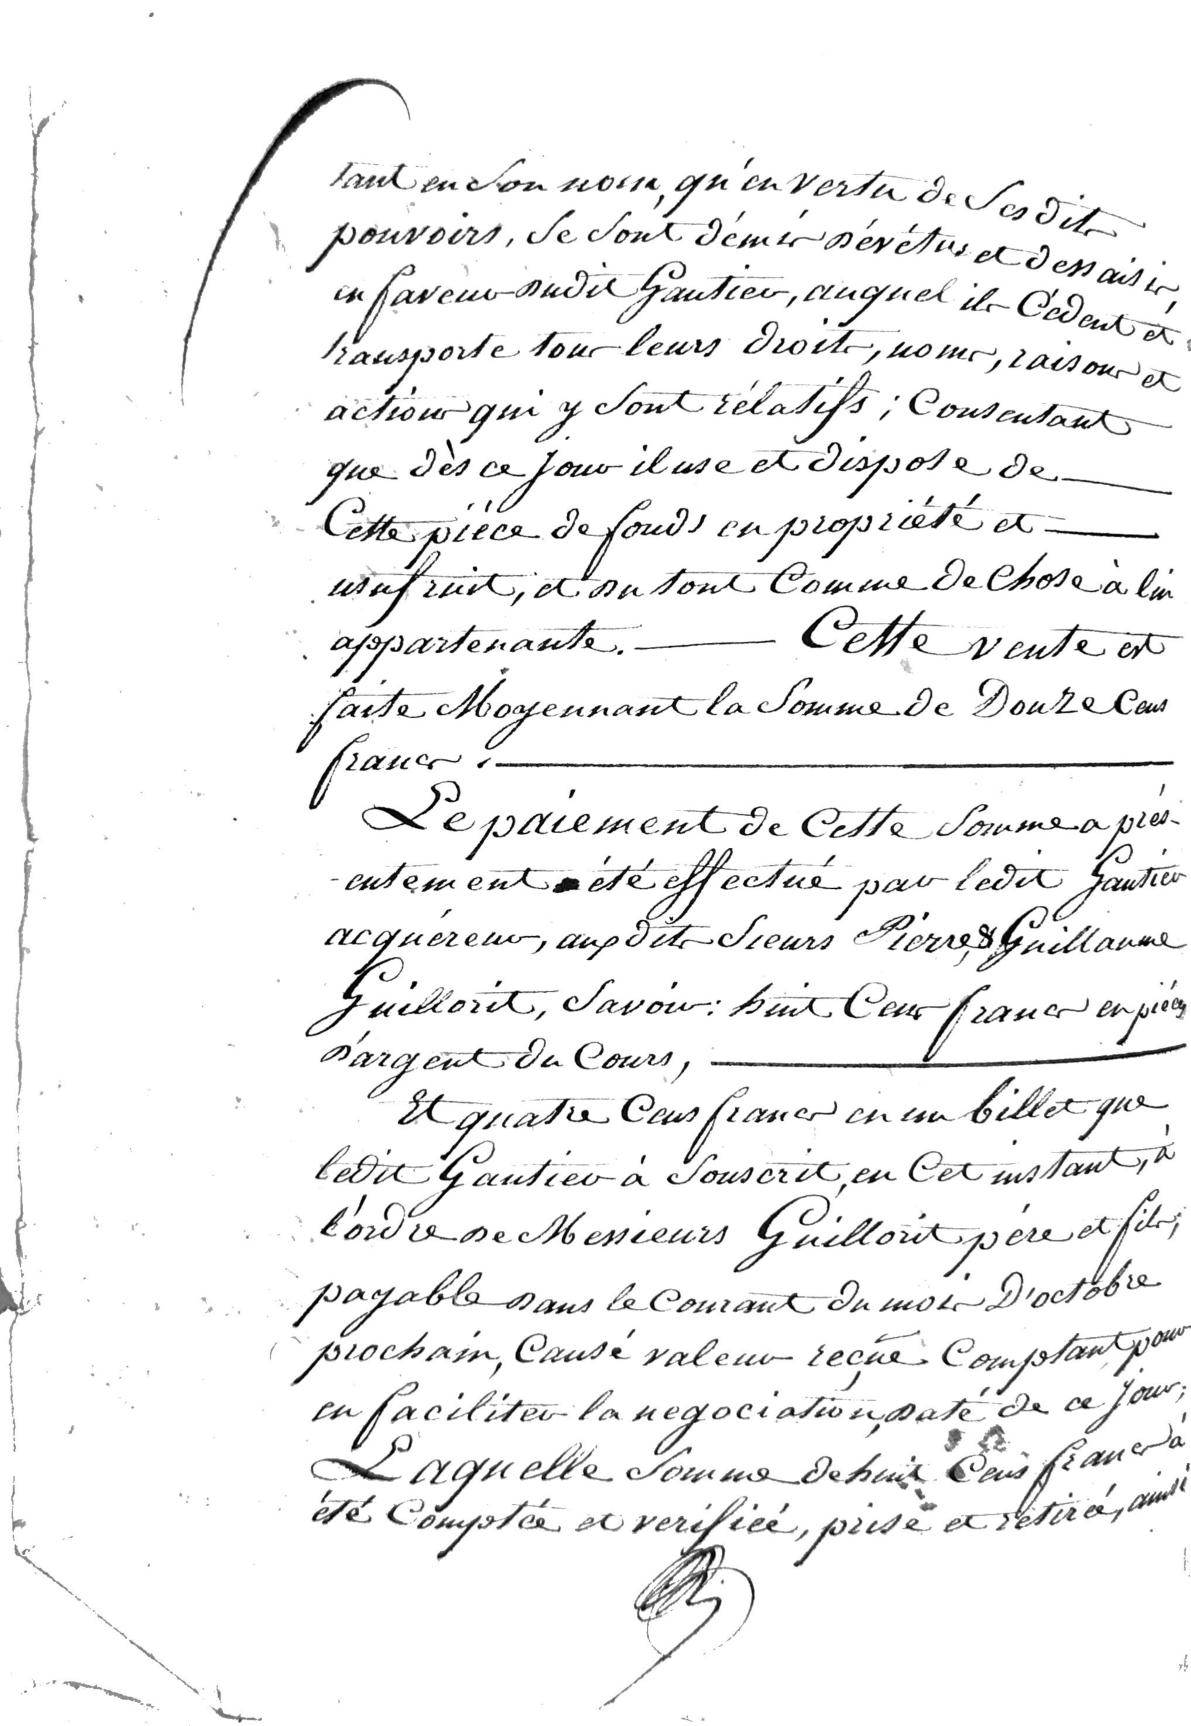 tant en son nom, qu'en vertu de ses dits
pouvoirs, se sont démis dévétus et dessaisis,
en faveur dudit Gautier, auquel ils cédent et
transporte tous leurs droits, noms, raisons et
actions qui y sont rélatifs; Consentant
que dès ce jour il use et dispose de
Cette piéce de fonds en propriété et
usufruit, et du tout Comme de Chose à lui
appartenante. Cette vente est
faite Moyennant la Somme de Douze Cens
francs.
Le paiement de Cette Somme a prés-
-entement été effectué par ledit Gautier
acquéreur, auxdits Sieurs Pierre, & Guillaume
Guillorit, Savoir: huit Cens francs en piéces
d'argent du Cours,
Et quatre Cens francs en un billet que
ledit Gautier à Souscrit, en Cet instant, à
l'ordre de Messieurs Guillorit père et fils,
payable dans le Courant du mois D'octobre
prochain, Causé valeur reçue Comptant pour
en faciliter la negociation, daté de ce jour;
Laquelle Somme de huit Cens francs à
été Comptée et verifiée, prise et retirée, ainsi